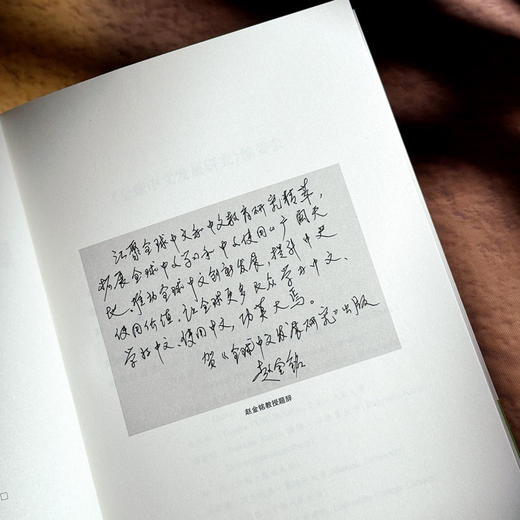 汇聚全球中文和中文教育研究精华,
拓展全球中文学习和中文使用的广阔天
地,推动全球中文创新发展,提升中文
使用价值,让全球更多民众学习中文、
学好中文、使用中文,功莫大焉。
贺《全球中文发展研究》出版
赵金铭
赵金铭教授题辞